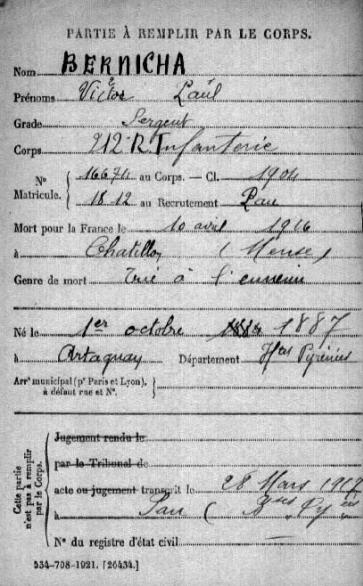 PARTIE À REMPLIR PAR LE CORPS.
Nom BERNICHA
Prénoms Victor Paul
Grade Sergent
Corps 212e R. Infanterie
No 16674 au Corps. — Cl. 1904
Matricule. 1812 au Recrutement Pau
Mort pour la France le 10 avril 1916
à Chatillon (Meuse)
Genre de mort Tué à l'ennemi
Né le 1er octobre 1887
à Artagnan Département Htes Pyrénées
Arrt municipal (pr Paris et Lyon),
à défaut rue et No.
Cette partie n'est pas à remplir par le Corps.
Jugement rendu le
par le Tribunal de
acte ou jugement transcrit le 28 Mars 1917
à Pau (Bses Pyées
No du registre d'état civil
534-708-1921. [26434.]